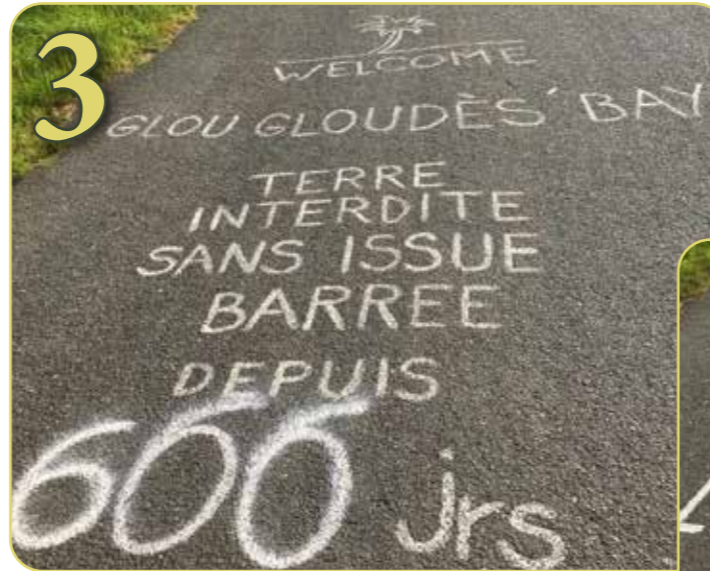 3
WELCOME
GLOU GLOUDÈS' BAY
TERRE
INTERDITE
SANS ISSUE
BARREE
DEPUIS
666 jrs